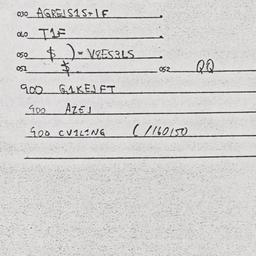 030 AGREJS1S+1F
040 T1F
050 $ )=V2ES3LS
051 $ 052 QQ
900 G1KEJFT
900 AZEJ
900 CV1L1NG (/160150